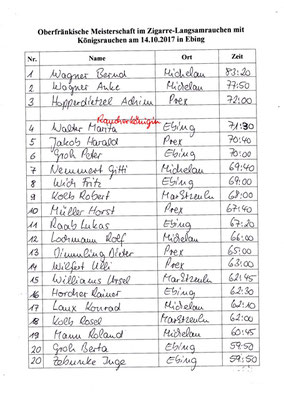 Oberfränkische Meisterschaft im Zigarre-Langsamrauchen mit
Königsrauchen am 14.10.2017 in Ebing
Nr. Name Ort Zeit
1 Wagner Bernd Michelau 83:20
2 Wagner Anke Michelau 77:50
3 Hopperdietzel Adrian Prex 72:00
Raucherkönigin
4 Walter Marita Ebing 71:30
5 Jakob Harald Prex 70:40
6 Groh Peter Ebing 70:00
7 Nemmert Gitti Michelau 69:40
8 Wich Fritz Ebing 69:00
9 Kolb Robert Marktzeuln 68:00
10 Müller Horst Prex 67:40
11 Raab Lukas Ebing 67:20
12 Lochmann Rolf Michelau 66:00
13 Dimmling Dieter Prex 65:00
14 Wilfert Ulli Prex 63:00
15 Williams Ursel Marktzeuln 62:45
16 Horcher Rainer Ebing 62:30
17 Laux Konrad Michelau 62:10
18 Kolb Rosel Marktzeuln 62:00
19 Mann Roland Michelau 60:45
20 Groh Berta Ebing 57:50
20 Inge Ebing 57:50